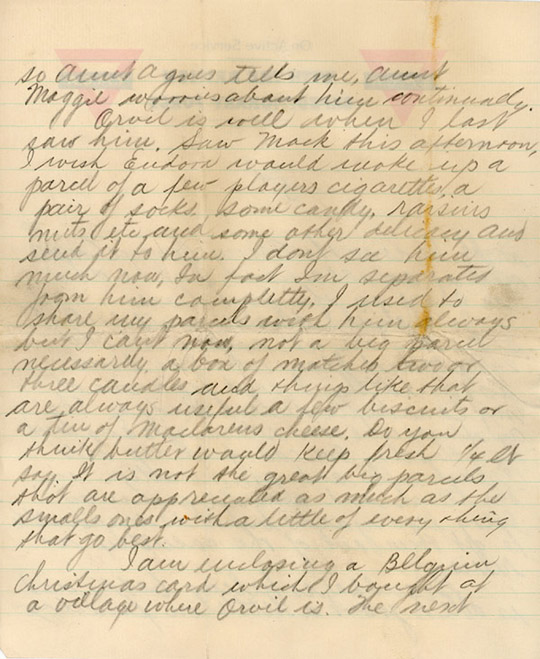 so Aunt Agnes tells me, Aunt
Maggie worries about him continually.
Orvil is well when I last
saw him. Saw Mack this afternoon,
I wish Eudora would make up a
parcel of a few players cigarettes, a
pair of socks, some candy, raisins
nuts etc and some other delicacy and
send it to him. I dont see him
much now, In fact Im separated
from him completly. I used to
share my parcels with him always
but I cant now, not a big parcel
necessarily, a box of matches, two or
three candles and things like that
are always useful a few biscuits or
a tin of Maclarens cheese. Do you
think butter would keep fresh 1/4 lb
say. It is not the great big parcels
that are appreciated as much as the
smalls ones with a little of every thing
that go best.
I am enclosing a Belgium
Christmas card which I bought at
a village where Orvil is. The next